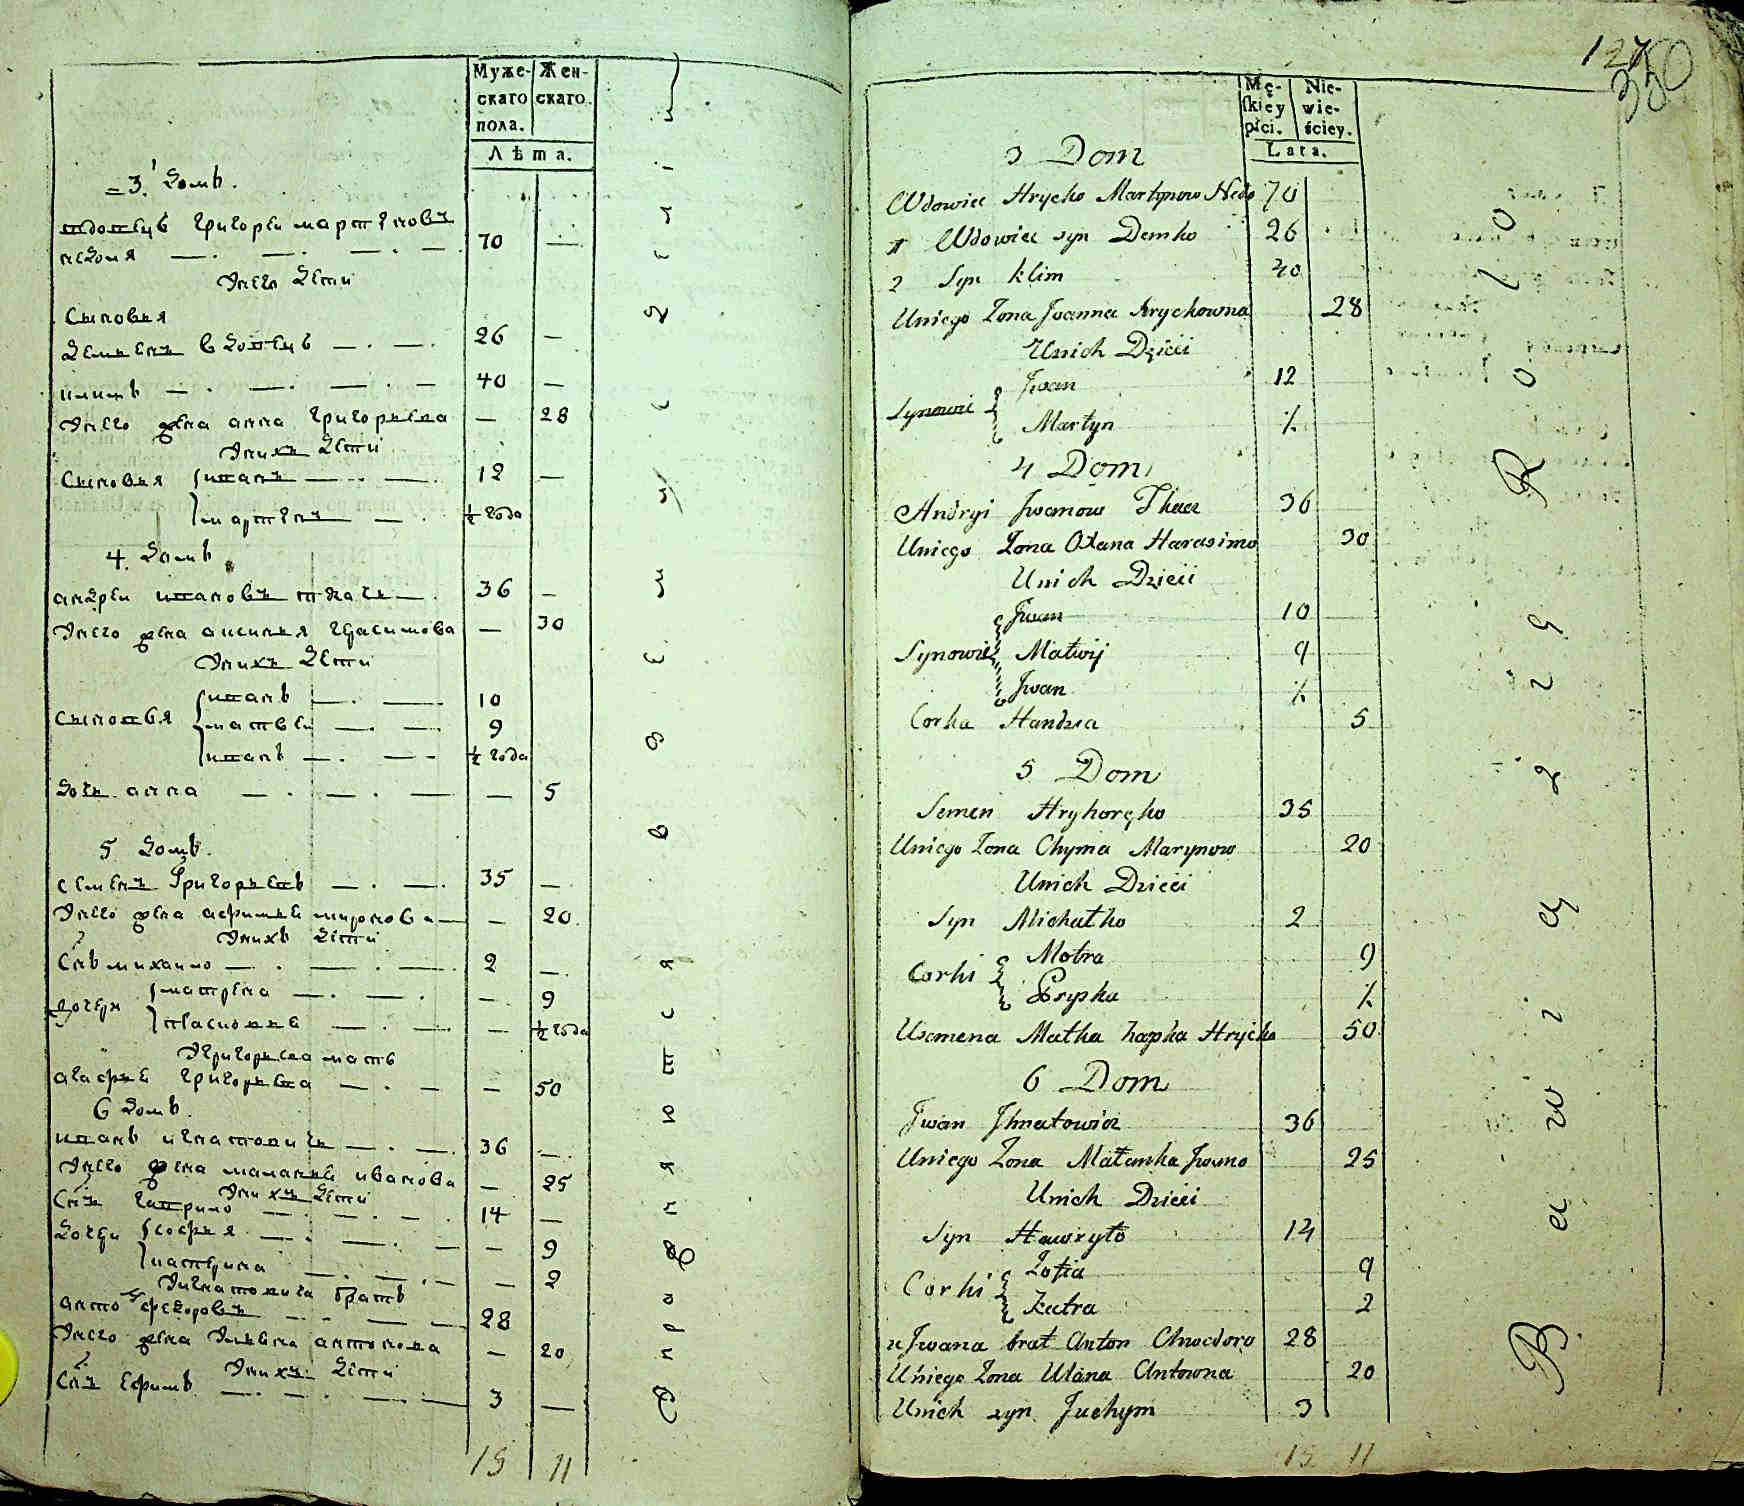 Муже-
скаго
пола.
Жен-
скаго.
Лѣта.
3. домъ.
вдовецъ григореи мартиновъ
недоля 70 —
Унего дети
Сыновья
демьенъ вдовецъ 26 —
климъ 40 —
Унего жена анна григорьева — 28
Унихъ дети
Сыновья иванъ 12 —
мартинъ ½ года
4. домъ
андреи ивановъ ткачь 36 —
Унего жена аксинья герасимова — 30
Унихъ дети
Сыновья иванъ 10
матвеи 9
иванъ ½ года
дочь анна — 5
5 домъ.
семенъ григорьевъ 35 —
Унего жена афимье миронова — 20
Унихъ дети
Снъ михаило 2 —
дочери матрена — 9
½ года
Угригорьева мать
агафье григорьева — 50
6 домъ.
иванъ игнатовичь 36 —
Унего жена маланье иванова — 25
Унихъ дети
Снъ гаврило 14 —
дочери софья — 9
катерина — 2
Уигнатовича братъ
антонъ федоровъ 28
Унего жена Ульяна антонова — 20
Унихъ дети
Снъ Ефимъ 3 —
15 11
127
350
Mę-
skiey
płci.
Nie-
wie-
ściey.
Lata.
3 Dom
Wdowiec Hrycko Martynow Nedo 70
1 Wdowiec syn Demko 26
2 Syn Klim 40
Uniego Zona Jwanna Hrychowna 28
Unich Dzieci
Synowie Jwan 12
Martyn ½
4 Dom
Andryi Jwanow Tkacz 36
Uniego Zona Oxana Harasimo 30
Unich Dzieci
Jwan 10
Synowie Matwij 9
Jwan ½
Corka Handzia 5
5 Dom
Semen Hryhoręko 35
Uniego Zona Chyma Marynow 20
Unich Dzieci
Syn Michałko 2
Corki Motra 9
Pryska ½
Usemena Matka hapka Hrycko 50
6 Dom
Jwan Jhnatowicz 36
Uniego Zona Małanka Jwano 25
Unich Dzieci
Syn Hawryło 14
Corki Zofia 9
Katra 2
u Jwana brat Anton Chwedoro 28
Uniego Zona Ulana Antowna 20
Unich syn Juchym 3
15 11